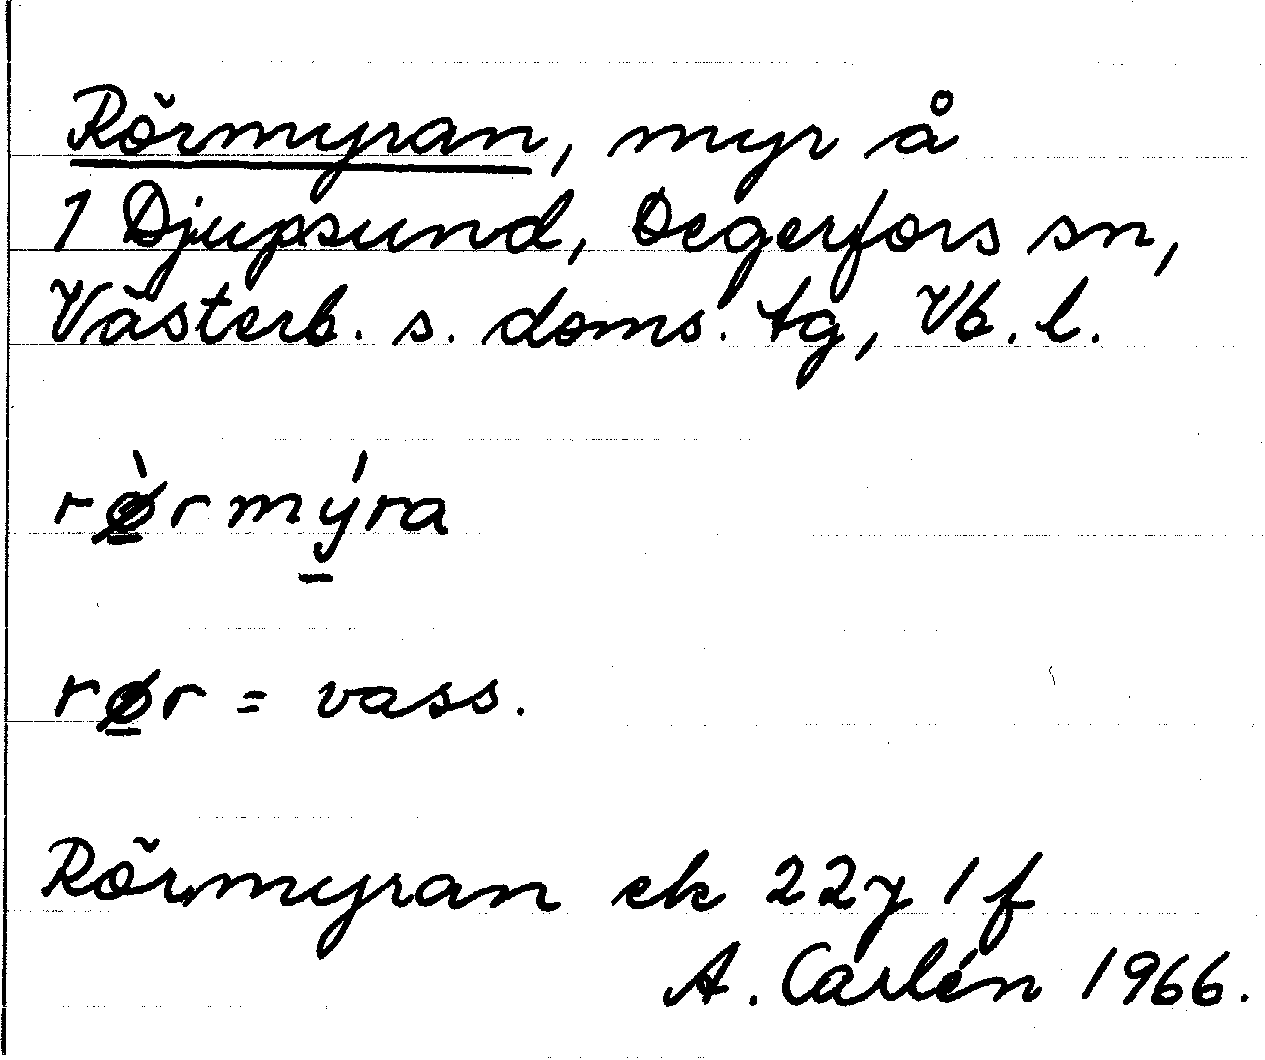 Rörmyran, myr å
1 Djupsund, Degerfors sn,
Västerb. s. doms. tg, Vb. l.
rø̀rmýra
rør = vass.
Rörmyran ek 22y 1 f
A. Carlén 1966.